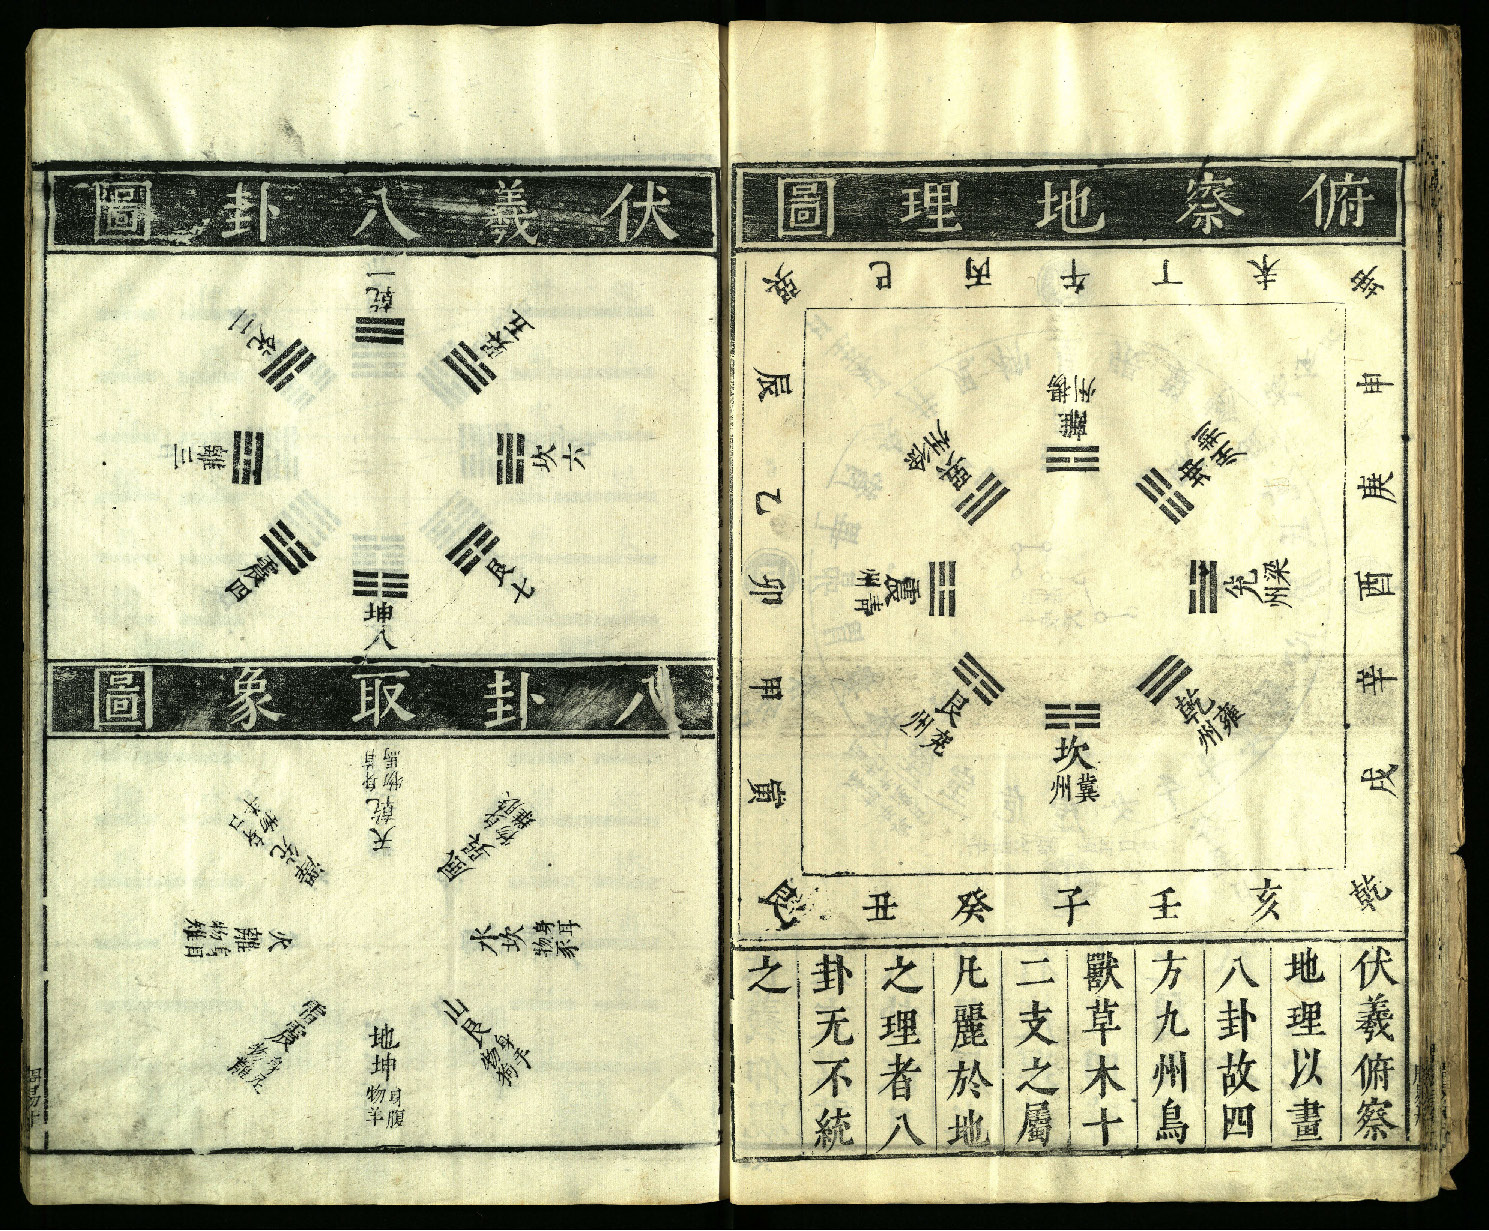 俯察地理圖
巽 巳 丙 午 丁 未 坤
申 庚 酉 辛 戌
乾 亥 壬 子 癸 丑 艮
寅 甲 卯 乙 辰
離 揚州
坤 荆州
兌 梁州
乾 雍州
坎 冀州
艮 兖州
震 青州
巽 徐州
伏羲俯察
地理以畫
八卦故四
方九州鳥
獸草木十
二支之屬
凡麗於地
之理者八
卦无不統
之
伏羲八卦圖
乾一
兌二
離三
震四
巽五
坎六
艮七
坤八
八卦取象圖
天乾 身首 物馬
澤兌 身口 物羊
火離 身目 物雉
雷震 身足 物龍
風巽 身股 物雞
水坎 身耳 物豕
山艮 身手 物狗
地坤 身腹 物羊